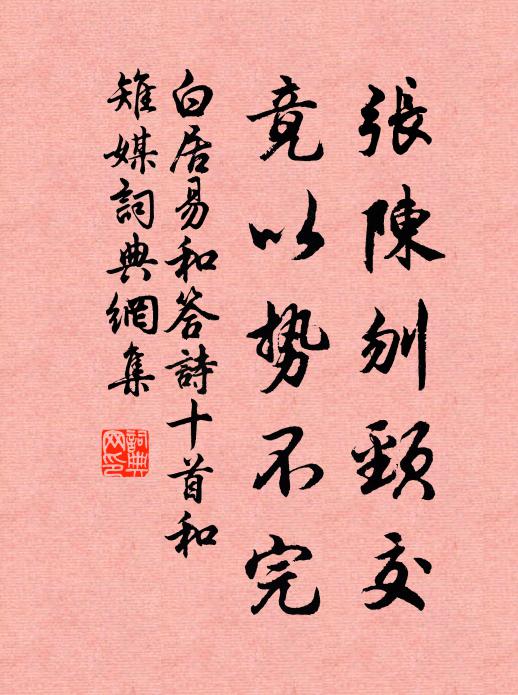 張陳刎頸交
竟以勢不完
白居易和答詩十首和
雉媒詞典網集
詞典
网印